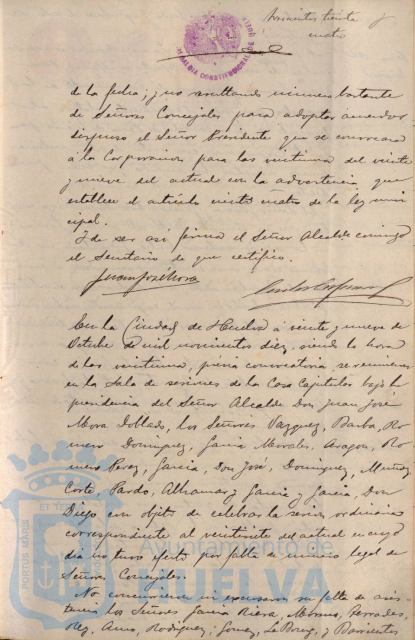 novecientos treinta y
cuatro
ALCALDIA CONSTITUCIONAL DE HUELVA
de la fecha; y no resultando número bastante
de Señores Concejales para adoptar acuerdo
dispuso el Señor Presidente que se convocara
á la Corporacion para las veintiuna del veinte
y nueve del actual con la advertencia que
establece el artículo ciento cuatro de la ley muni
cipal.
Y de ser así firma el Señor Alcalde conmigo
el Secretario de que certifico.
Juan José Mora
En la Ciudad de Huelva á veinte y nueve de
Octubre de mil novecientos diez, siendo la hora
de las veintiuna, prévia convocatoria, se reunieron
en la Sala de sesiones de la Casa Capitular bajo la
presidencia del Señor Alcalde Don Juan José
Mora Doblado, los Señores Vazquez, Barba, Ro
mero Dominguez, Garcia Morales, Aragon, Ro
mero Perez, Garcia, Don José, Dominguez, Muñoz,
Corte, Pardo, Albramar y Garcia y Garcia, Don
Diego con objeto de celebrar la sesion ordinaria
correspondiente al veintisiete del actual en cuyo
dia no tuvo efecto por falta de número legal de
Señores Concejales.
No concurrieron ni excusaron su falta de asis
tencia los Señores Garcia Riera, Moreno, Terrades,
Rey, Rodriguez, Gomez, Le Bourg, y Barrientos,
PORTUS MARIS ET TE
Ayuntamiento de
HUELVA